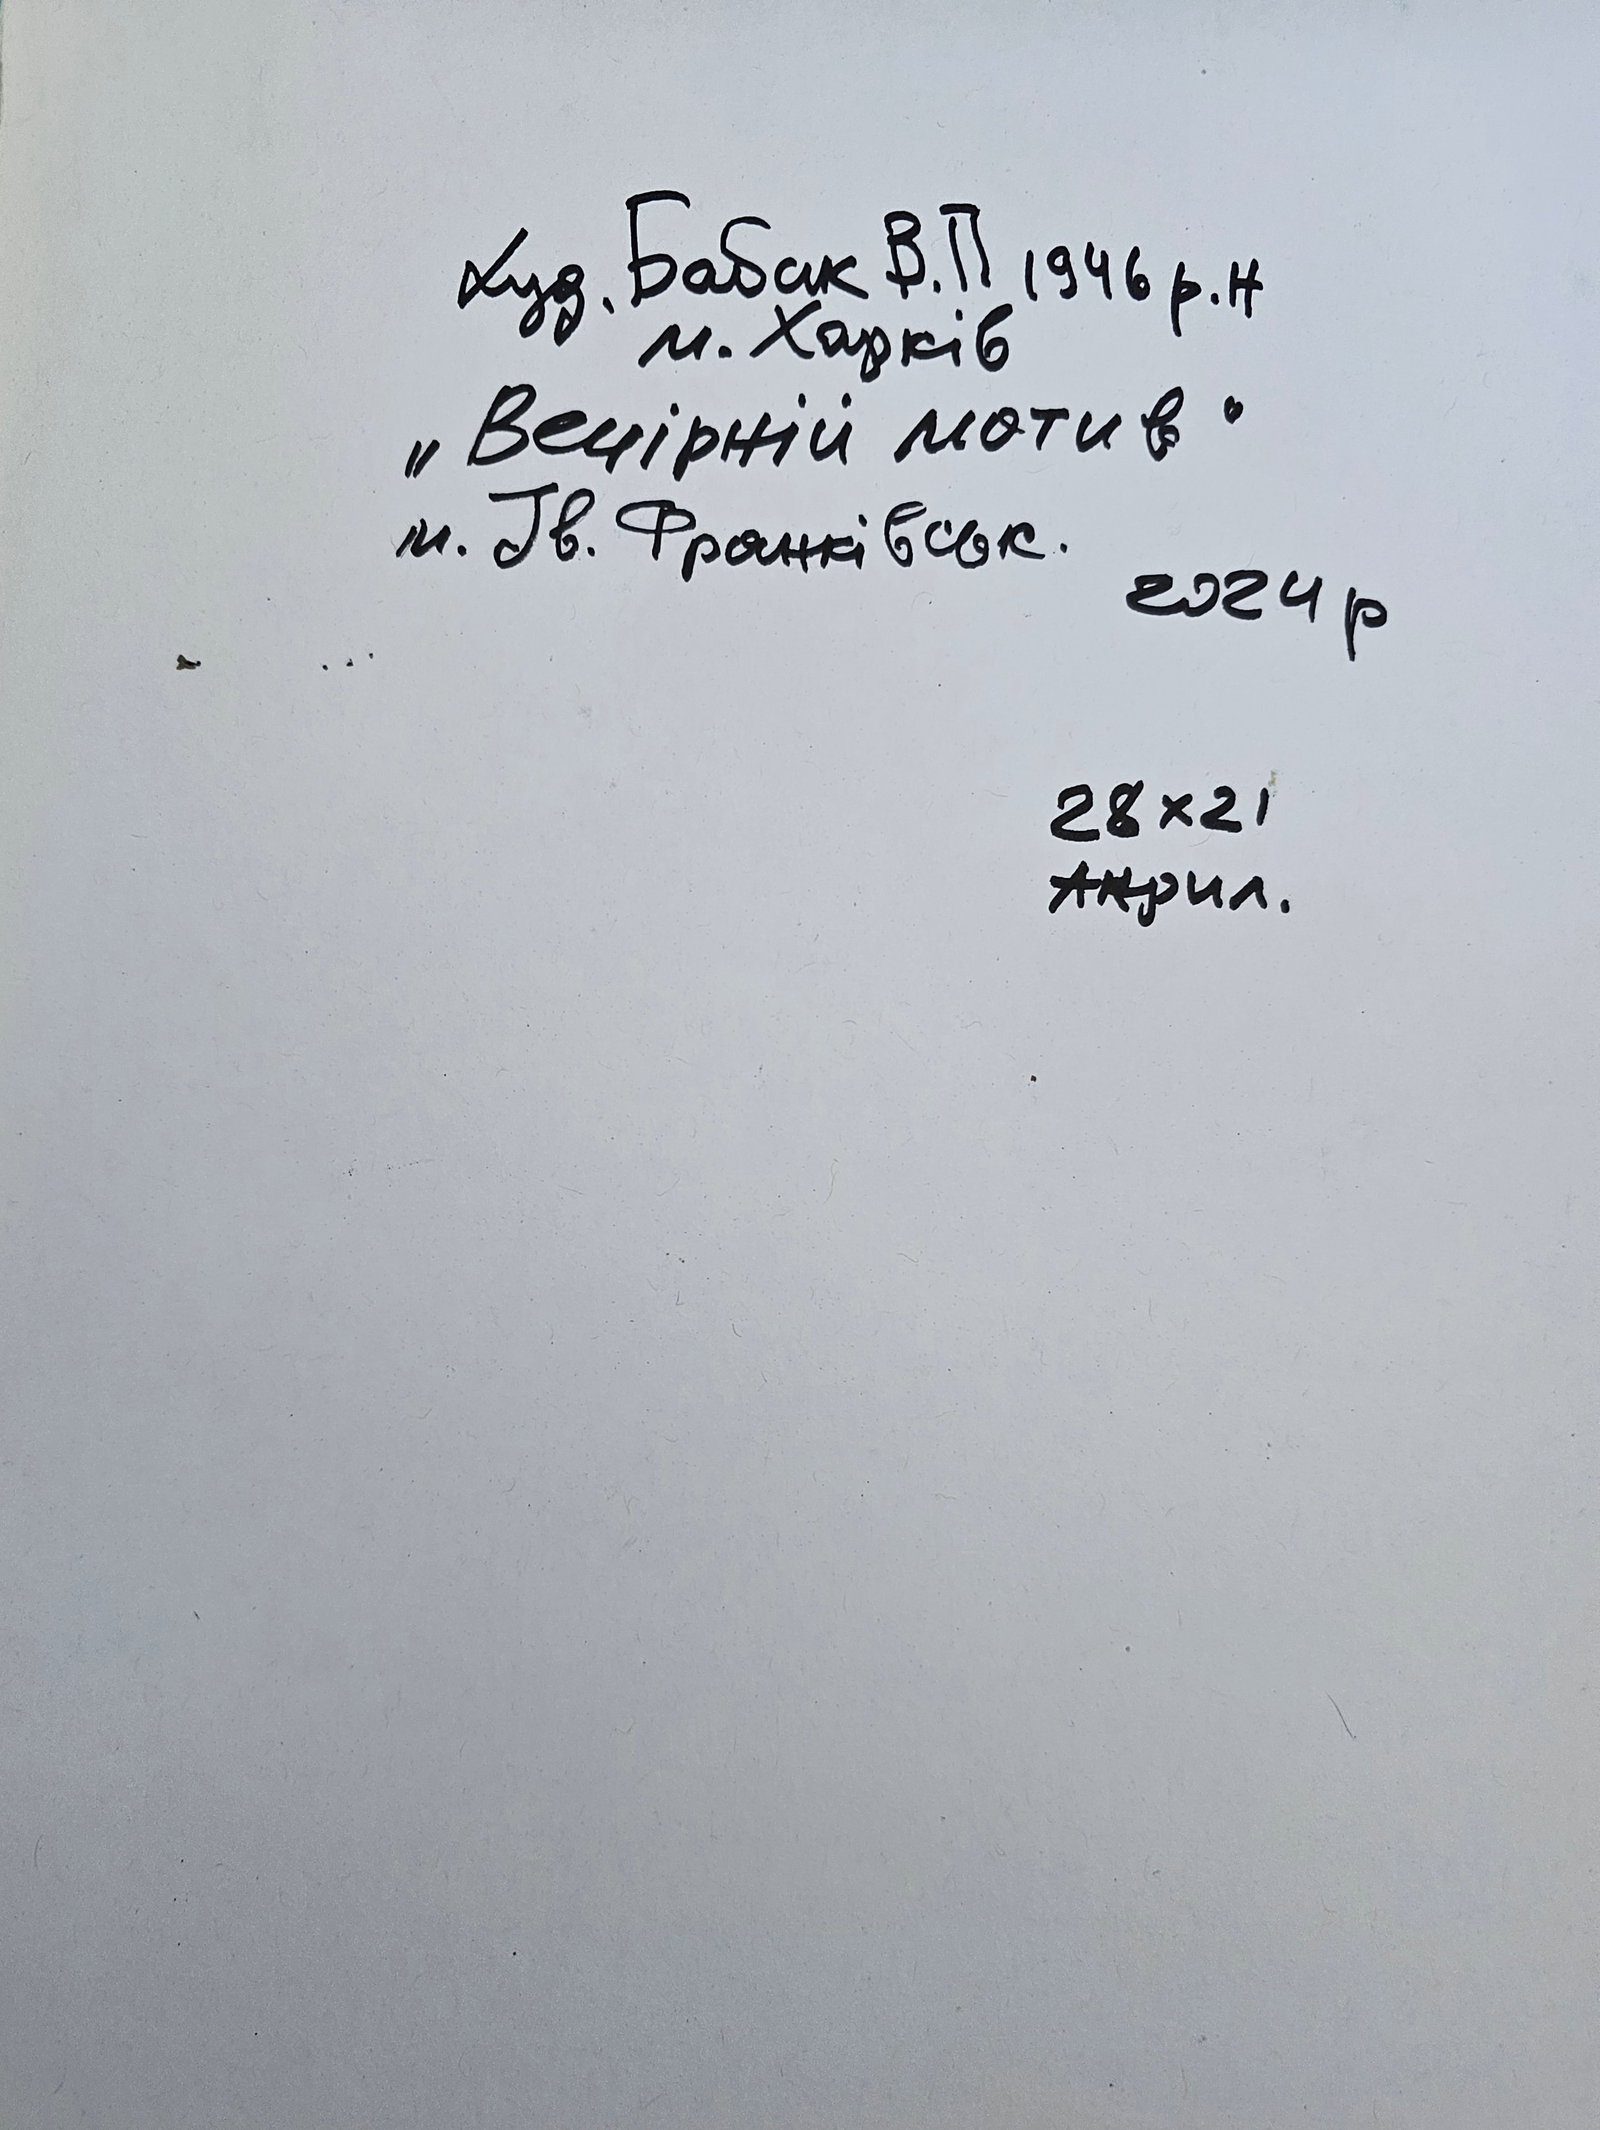 Худ. Бабак В.П 1946 р.н
м. Харків
„Вечірній мотив"
м. Ів. Франківськ.
2024 р
28x21
Акрил.